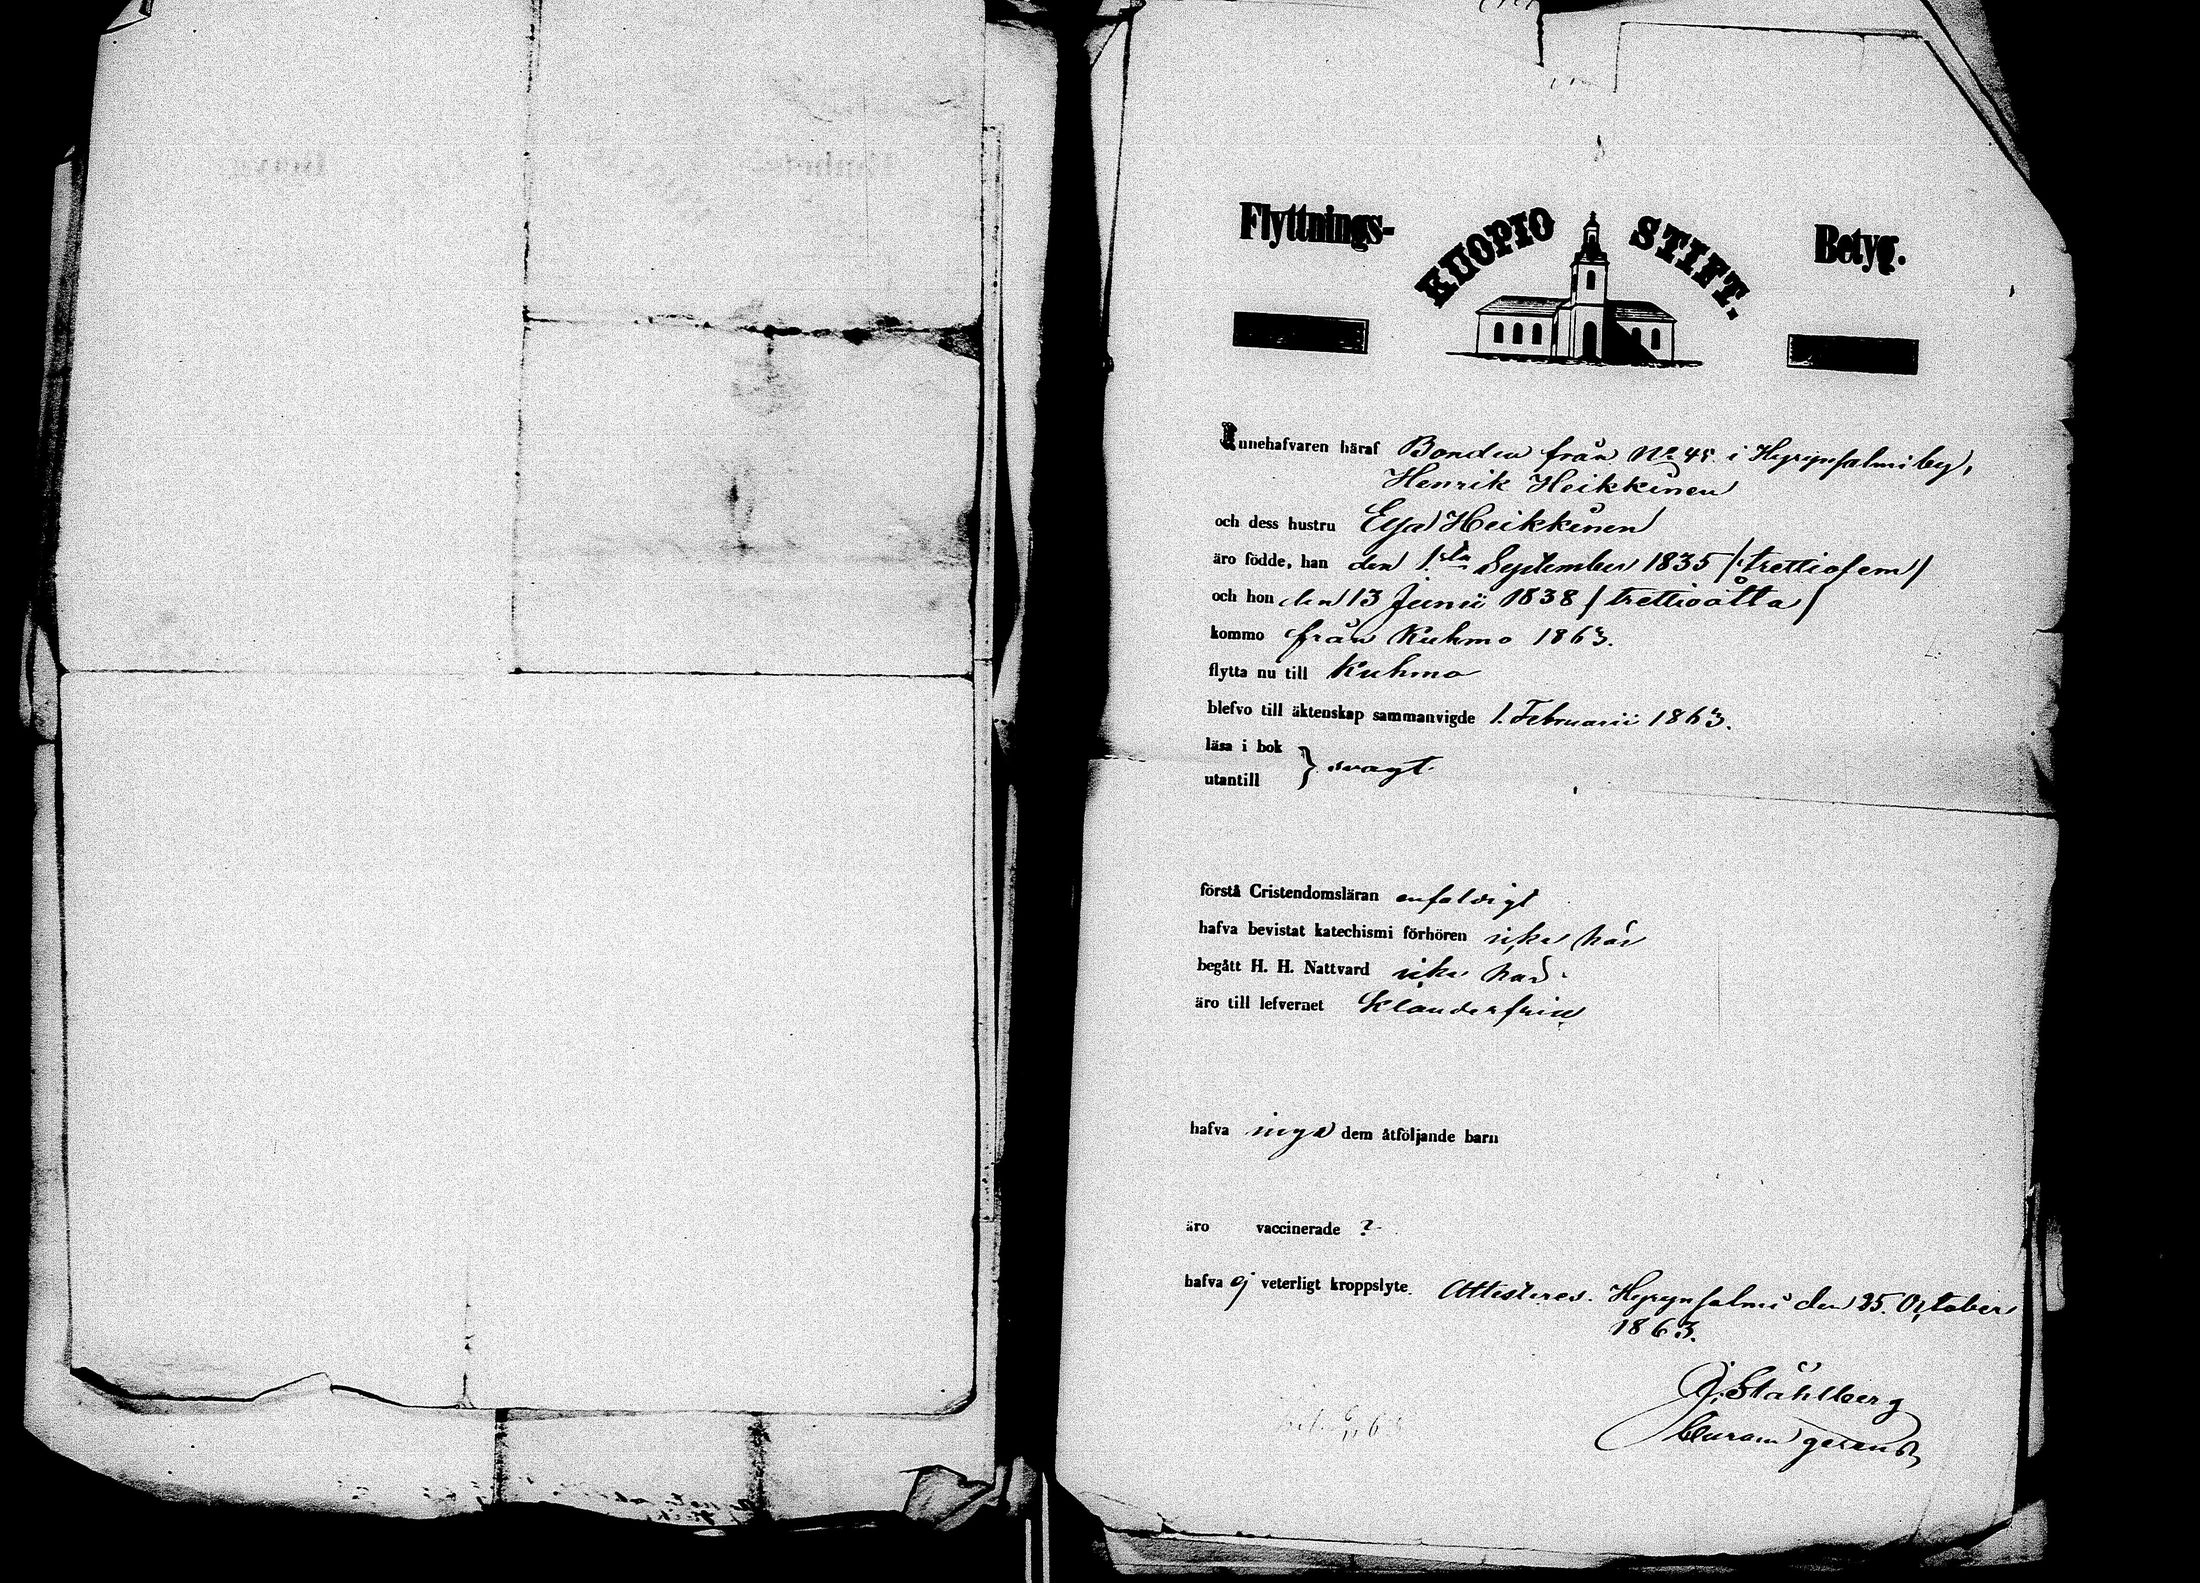 Flyttnings- KUOPIO STIFT. Betyg.
Innehafvaren häraf Bonden från No 45 i Hyrynsalmi by,
Henrik Heikkinen
och dess hustru Eva Heikkinen
äro födde, han den 1sta September 1835 /trettiofem/
och hon den 13 Junii 1838 /trettioåtta/
kommo från Kuhmo 1863.
flytta nu till Kuhmo
blefvo till äktenskap sammanvigde 1. Februarii 1863.
läsa i bok
utantill } svagt.
förstå Cristendomsläran enfaldigt
hafva bevistat katechismi förhören icke här
begått H. H. Nattvard icke här
äro till lefvernet klanderfrie
hafva inga dem åtföljande barn
äro vaccinerade ?
hafva ej veterligt kroppslyte. Attesteres. Hyrynsalmi den 25. October
1863.
Stählberg
Curam gerens